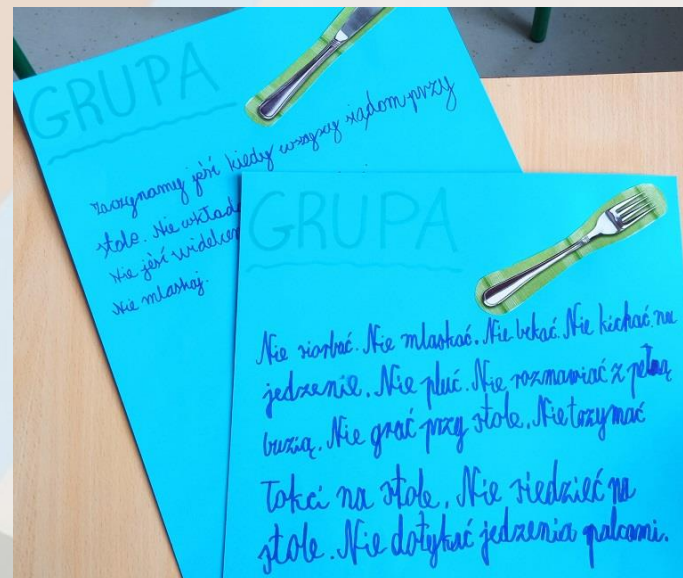 GRUPA
zaczynamy jeść kiedy wszyscy siądom przy
stole. Nie wkłada
Nie jeść widelcem
Nie mlaskaj.
GRUPA
Nie siorbać. Nie mlaskać. Nie bekać. Nie kichać na
jedzenie. Nie pluć. Nie rozmawiać z pełną
buzią. Nie grać przy stole. Nie trzymać
Łokci na stole. Nie siedzieć na
stole. Nie dotykać jedzenia palcami.